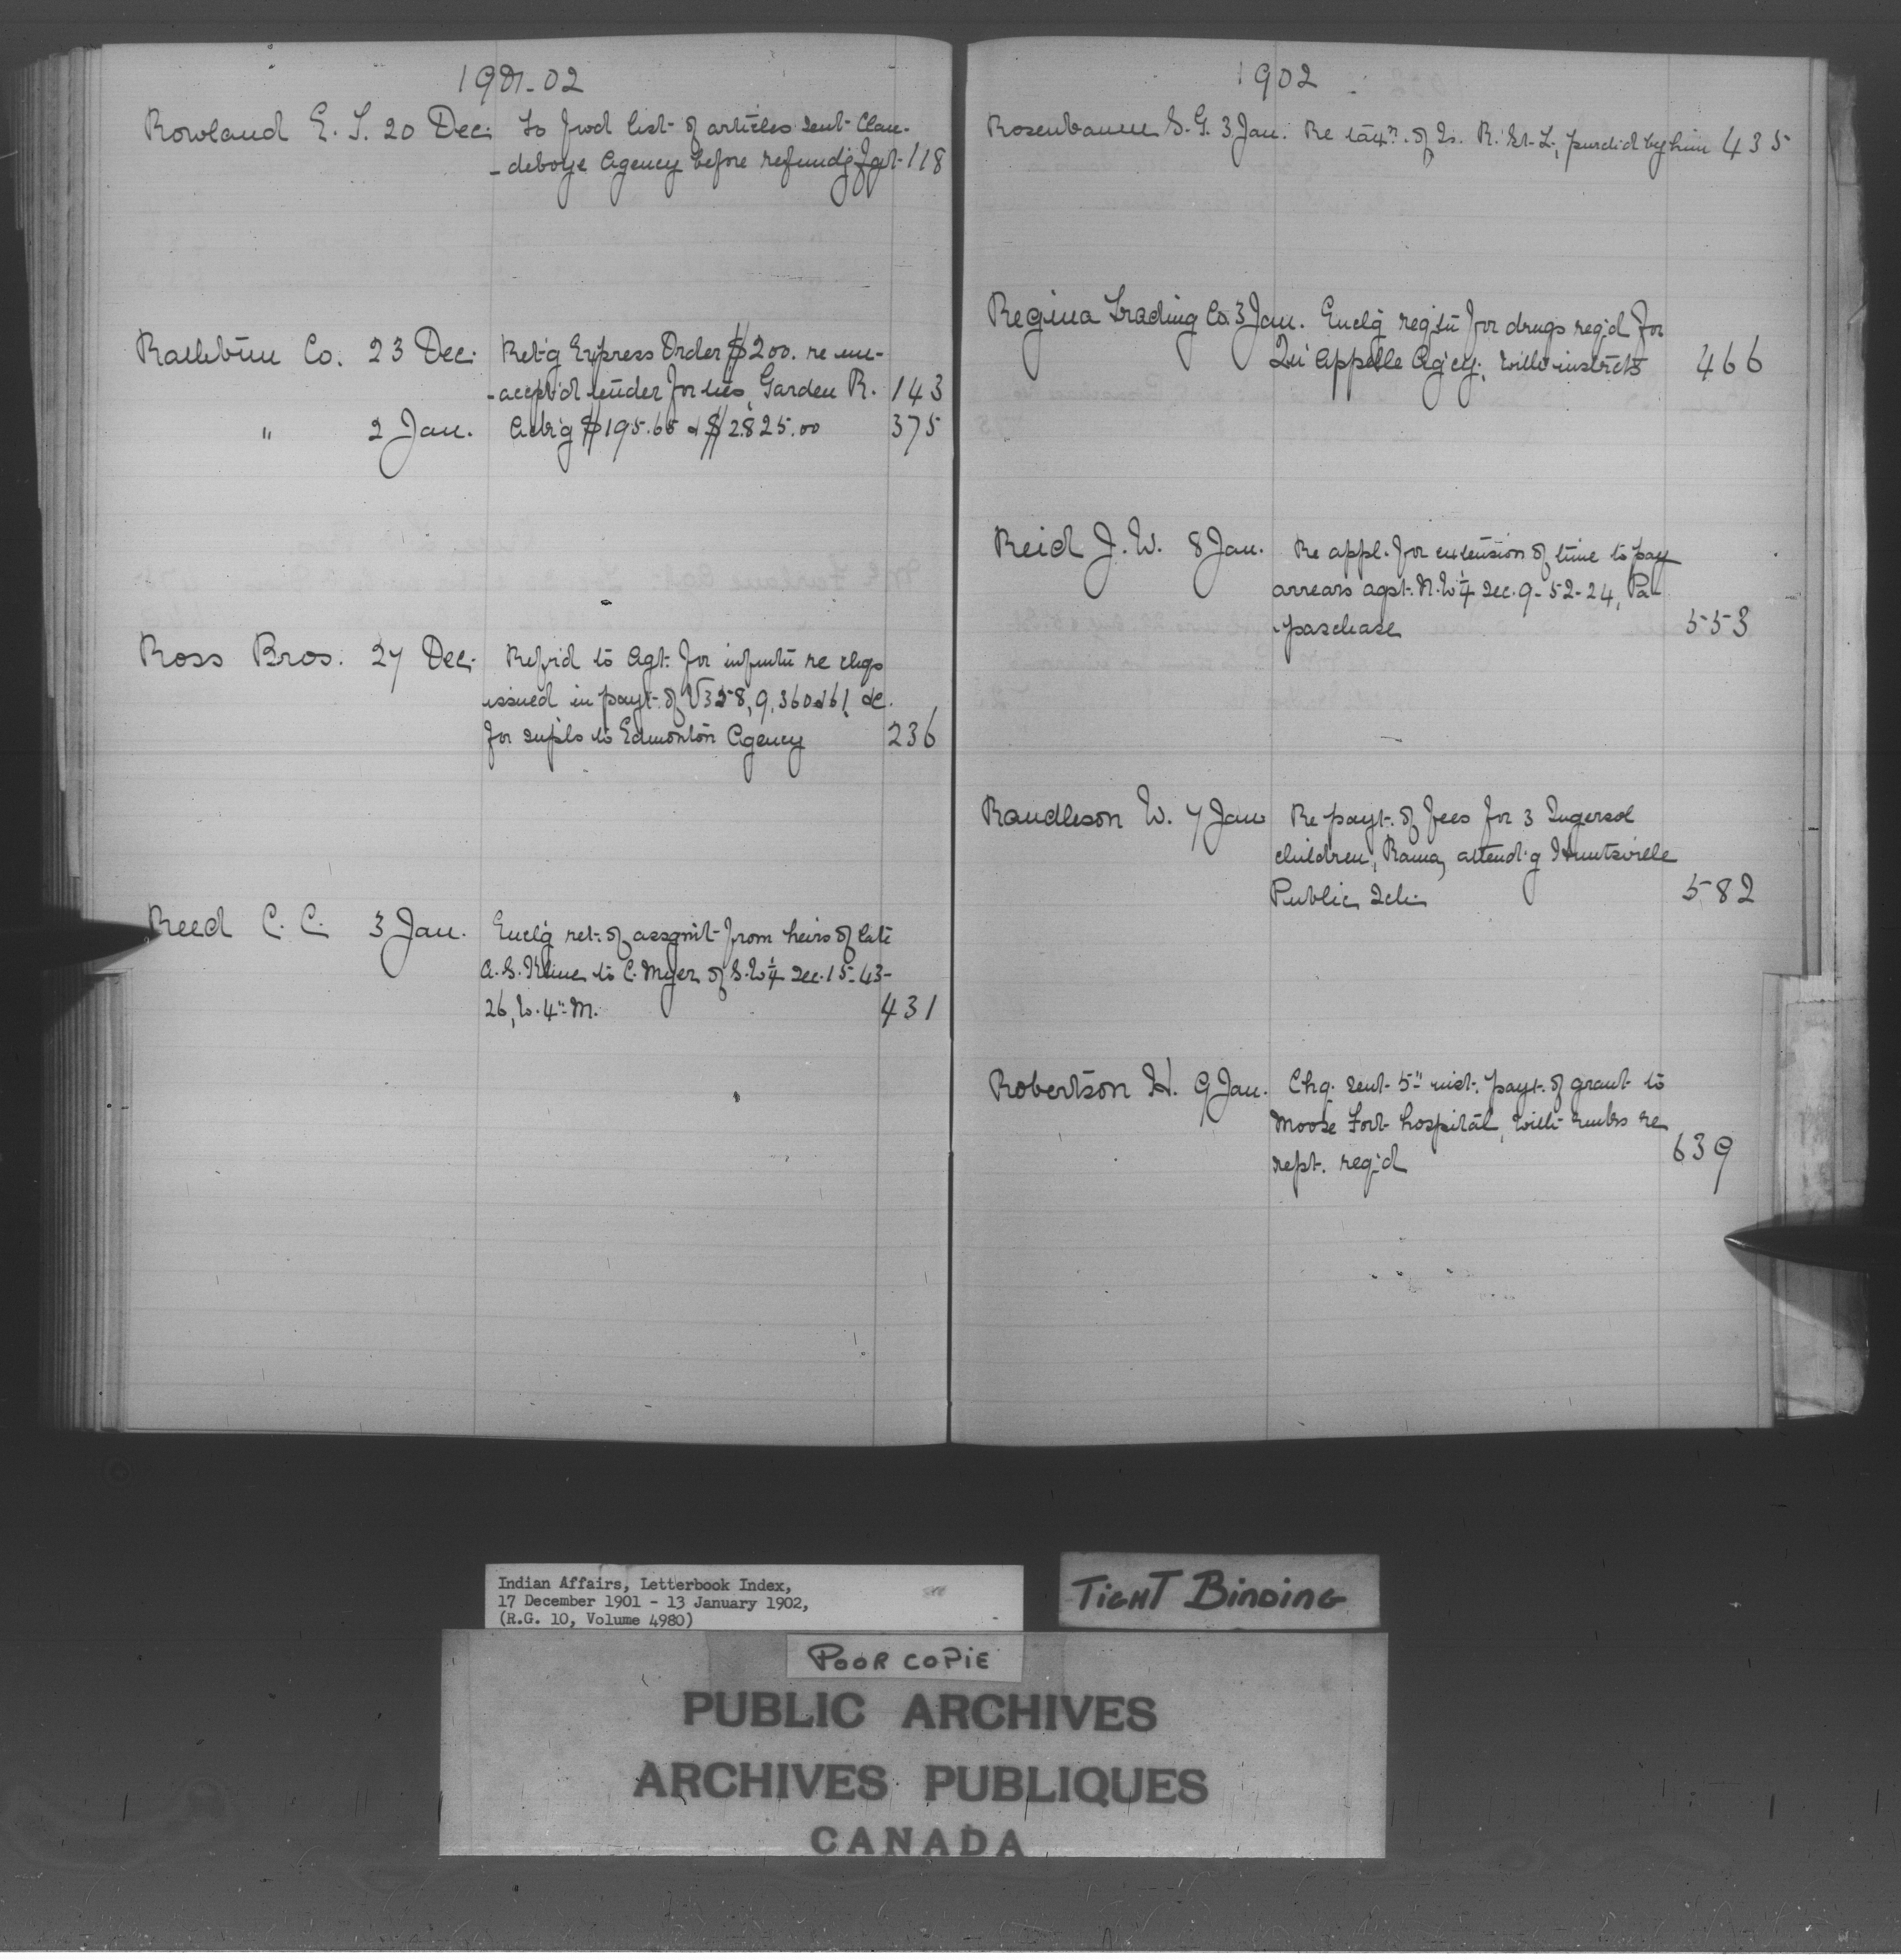 1901-02
Rowland E. S. 20 Dec. To fwd list of articles sent Clan-
-deboye Agency before refund'g fgt. 118
Rathbun Co. 23 Dec. Ret'g Express Order $200. re un-
-accept'd tender for ties, Garden R. 143
" 2 Jan. Ack'g $195.65 & $2825.00 375
Ross Bros. 27 Dec. Refr'd to Agt. for infmtn re chqs
issued in payt. of V358, 9, 360 & 61, &c.
for supls to Edmonton Agency 236
Reed C. C. 3 Jan. Encl'g ret. of assgnmt from heirs of late
A. S. Kline to C. Myer of S.W¼ Sec. 15-43-
26, W. 4" M. 431
1902
Rosenbaum S. G. 3 Jan. Re taxn. of Is. R. St. L., purch'd by him 435
Regina Trading Co. 3 Jan. Encl'g reqstn for drugs req'd for
Qu'Appelle Ag'cy; with instrcts 466
Reid J. W. 8 Jan. Re appl. for extension of time to pay
arrears agst. N.W¼ Sec. 9-52-24, Pa-
-paschase 553
Randleson W. 7 Jan Re payt. of fees for 3 Ingersol
children, Rama, attend'g Huntsville
Public Sch. 582
Robertson H. 9 Jan. Chq. sent 5" inst. payt. of grant to
Moose Fort hospital, with rmks re
rept. req'd 639
Indian Affairs, Letterbook Index,
17 December 1901 - 13 January 1902,
(R.G. 10, Volume 4980)
TIGHT BINDING
POOR COPIE
PUBLIC ARCHIVES
ARCHIVES PUBLIQUES
CANADA